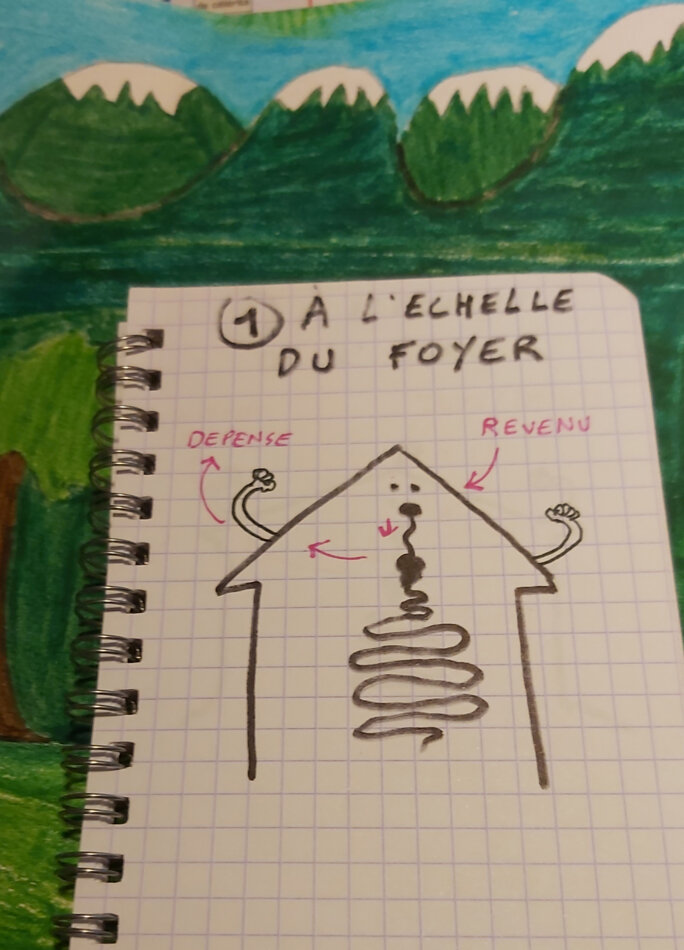 ① À L'ECHELLE
DU FOYER
DEPENSE
REVENU